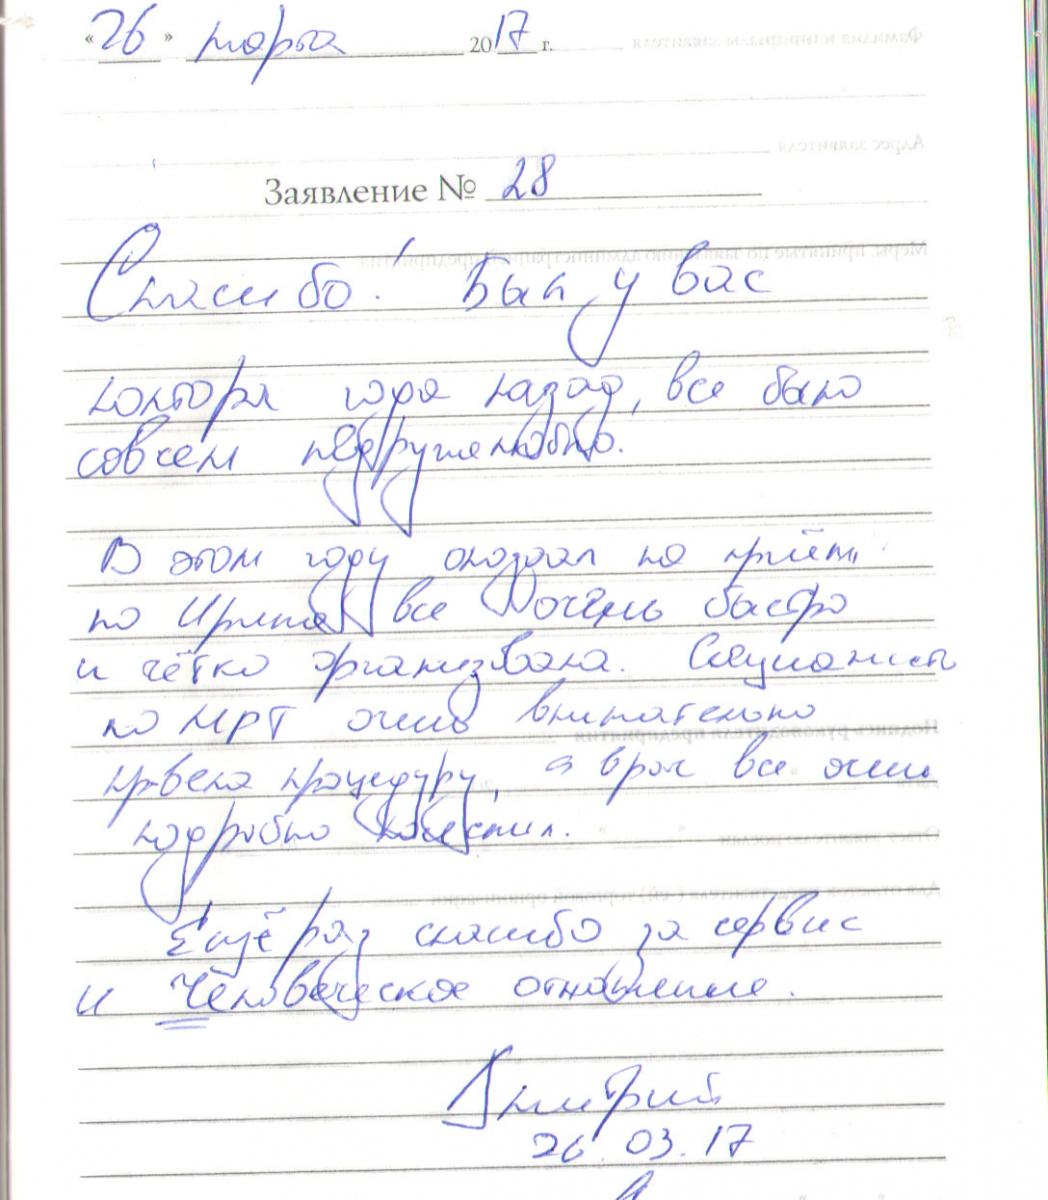 «26» марта 2017 г.
Заявление № 28
Спасибо! Был у вас
полтора года назад, все было
совсем недружелюбно.
В этом году опоздал на приём,
но Ирина все очень быстро
и чётко организовала. Специалист
по МРТ очень внимательно
провела процедуру, а врач все очень
подробно пояснил.
Ещё раз спасибо за сервис
и Человеческое отношение.
Дмитрий
26.03.17